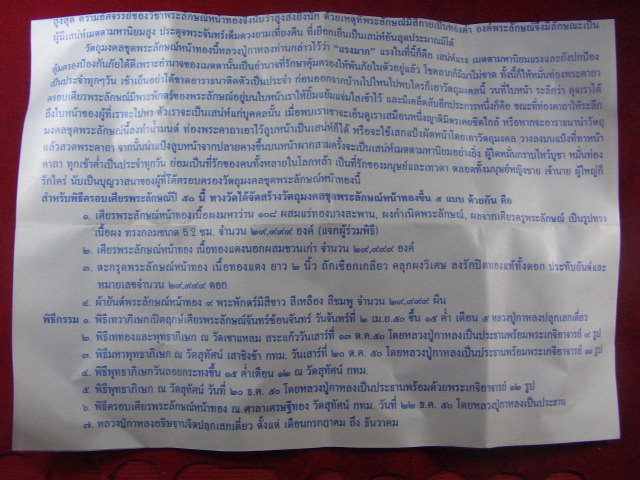 สูงสุด ความอัศจรรย์ของวิชาพระลักษณ์หน้าทองจึงนับว่าสูงส่งยิ่งนัก ด้วยเหตุที่พระลักษณ์มีสีกายเป็นทองคำ องค์พระลักษณ์จึงมีลักษณะเป็น
ผู้มีเสน่ห์เมตตามหานิยมสูง ประดุจพระจันทร์เต็มดวงยามเที่ยงคืน ที่เยือกเย็นเป็นเสน่ห์อันสุดประมาณมิได้
วัตถุมงคลชุดพระลักษณ์หน้าทองนี้หลวงปู่กาหลงท่านกล่าวไว้ว่า "แรงมาก" แรงในที่นี้ก็คือ เสน่ห์แรง เมตตามหานิยมแรงและยังปกป้อง
คุ้มครองป้องกันภัยได้ดีเพราะอำนาจของเมตตานั้นเป็นอำนาจที่รักษาคุ้มครองให้พ้นภัยในตัวอยู่แล้ว โชคลาภก็มีมาไม่ขาด ทั้งนี้ก็ให้หมั่นท่องพระคาถา
เป็นประจำทุกๆวัน เช้าเย็นอย่าได้ขาดอาราธนาติดตัวเป็นประจำ ก่อนออกจากบ้านไปไหนไปพบใครก็เอาวัตถุมงคลนี้ วนที่ใบหน้า ระลึกว่า ดุจเราได้
ครอบเศียรพระลักษณ์มีพระพักตร์ของพระลักษณ์อยู่บนใบหน้าเราให้ยิ้มแย้มแจ่มใสเข้าไว้ และมีเคล็ดลับอีกประการหนึ่งก็คือ ขณะที่ท่องคาถาให้ระลึก
ถึงใบหน้าของผู้ที่เราจะไปหา ตัวเราจะเป็นเสน่ห์แก่บุคคลนั้น เมื่อพบเราเขาจะเอ็นดูเราเสมือนหนึ่งญาติมิตรเคยชิดใกล้ หรือหากจะอาราธนานำวัตถุ
มงคลชุดพระลักษณ์นี้ลงทำน้ำมนต์ ท่องพระคาถาเอาไว้ลูบหน้าเป็นเสน่ห์ก็ได้ หรือจะใช้เสกแป้งผัดหน้าโดยเอาวัตถุมงคล วางลงบนแป้งที่ทาหน้า
แล้วสวดพระคาถา จากนั้นนำแป้งลูบหน้าจากปลายคางขึ้นบนหน้าผากสามครั้งจะเป็นเสน่ห์เมตตามหานิยมอย่างยิ่ง ผู้ใดหมั่นกราบไหว้บูชา หมั่นท่อง
คาถา ทุกเช้าค่ำเป็นประจำทุกวัน ย่อมเป็นที่รักของคนทั้งหลายในโลกหล้า เป็นที่รักของมนุษย์และเทวดา ตลอดทั้งมนุษย์หญิงชาย เจ้านาย ผู้ใหญ่ก็
รักใคร่ นับเป็นบุญวาสนาของผู้ที่ได้ครอบครองวัตถุมงคลชุดพระลักษณ์หน้าทองนี้
สำหรับพิธีครอบเศียรพระลักษณ์ปี ๕๐ นี้ ทางวัดได้จัดสร้างวัตถุมงคลชุดพระลักษณ์หน้าทองขึ้น ๕ แบบ ด้วยกัน คือ
๑. เศียรพระลักษณ์หน้าทองเนื้อผงมหาว่าน ๑๐๘ ผสมแร่ทองบางสะพาน, ผงกำเนิดพระลักษณ์, ผลจากเศียรครูพระลักษณ์ เป็นรูปทรง
เนื้อผง ทรงกลมขนาด ๕.๒ ซม. จำนวน ๒๙,๙๙๙ องค์ (แจกผู้ร่วมพิธี)
๒. เศียรพระลักษณ์หน้าทอง เนื้อทองแดงนอกผสมชนวนเก่า จำนวน ๒๙,๙๙๙ องค์
๓. ตะกรุดพระลักษณ์หน้าทอง เนื้อทองแดง ยาว ๒ นิ้ว ถักเชือกเกลียว คลุกผงวิเศษ ลงรักปิดทองแท้ทั้งดอก ประทับยันต์และ
หมายเลขจำนวน ๒๙,๙๙๙ ดอก
๔. ผ้ายันต์พระลักษณ์หน้าทอง ๙ พระพักตร์มีสีขาว สีเหลือง สีชมพู จำนวน ๒๙,๙๙๙ ผืน
พิธีกรรม ๑. พิธีเทวาภิเษกเปิดฤกษ์เศียรพระลักษณ์จันทร์ซ้อนจันทร์ วันจันทร์ที่ ๒ เม.ย.๕๐ ขึ้น ๑๕ ค่ำ เดือน ๕ หลวงปู่กาหลงปลุกเสกเดี่ยว
๒. พิธีเททองและพุทธาภิเษก ณ วัดเขาแหลม สระแก้ววันเสาร์ที่ ๑๓ ต.ค. ๕๐ โดยหลวงปู่กาหลงเป็นประธานพร้อมพระเกจิอาจารย์ ๙ รูป
๓. พิธีมหาพุทธาภิเษก ณ วัดสุทัศน์ เสาชิงช้า กทม. วันเสาร์ที่ ๒๐ ต.ค. ๕๐ โดยหลวงปู่กาหลงเป็นประธานพร้อมพระเกจิอาจารย์ ๑๑ รูป
๔. พิธีพุทธาภิเษกวันลอยกระทงขึ้น ๑๕ ค่ำเดือน ๑๒ ณ วัดสุทัศน์ กทม.
๕. พิธีพุทธาภิเษก ณ วัดสุทัศน์ วันที่ ๒๐ ธ.ค. ๕๐ โดยหลวงปู่กาหลงเป็นประธานพร้อมด้วยพระเกจิอาจารย์ ๑๒ รูป
๖. พิธีครอบเศียรพระลักษณ์หน้าทอง ณ ศาลาเศรษฐีทอง วัดสุทัศน์ กทม. วันที่ ๒๒ ธ.ค. ๕๐ โดยหลวงปู่กาหลงเป็นประธาน
๗. หลวงปู่กาหลงอธิษฐานจิตปลุกเสกเดี่ยว ตั้งแต่ เดือนกรกฎาคม ถึง ธันวาคม